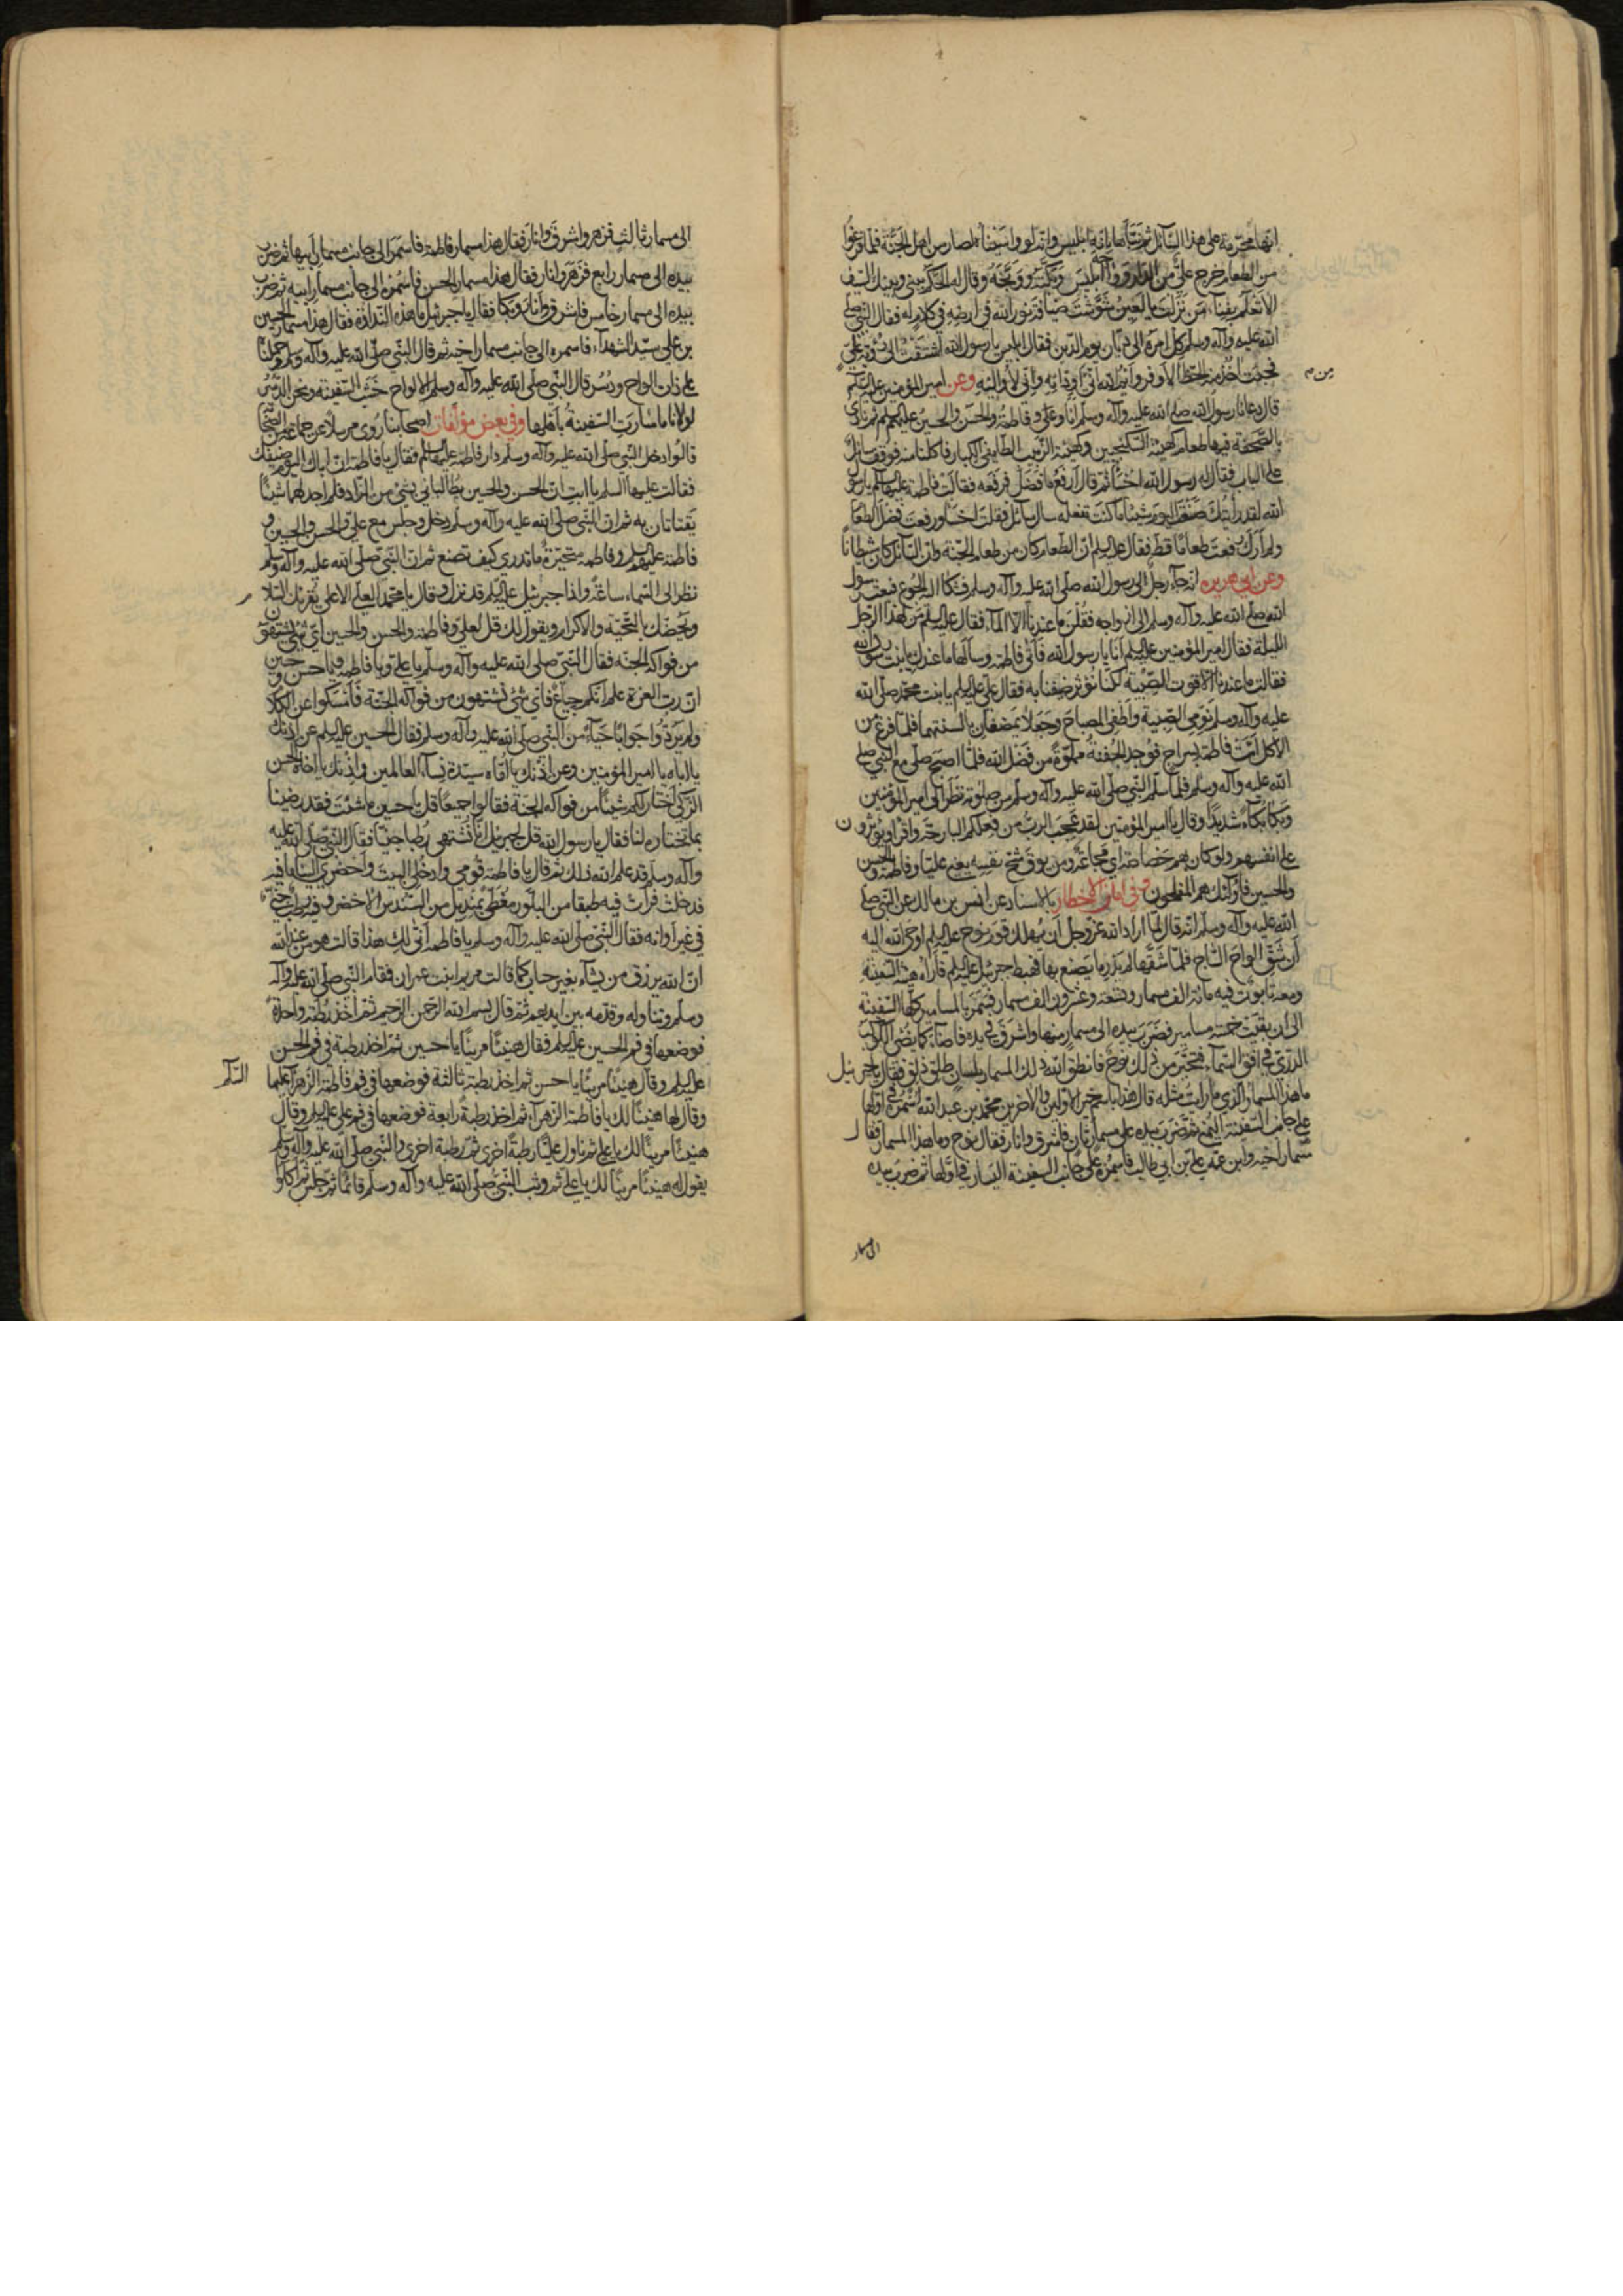 انها محرمة على هذا السائل ثم نبأها بانه ابليس وانه لو واسيناه لصار من اهل الجنة فلما فرغوا
من الطعام خرج علي من الدار ابليس وبكته ووبخه وقال له الحكم بيني وبينك السيف
الا تعلم بفناء من نزلت يا لعين شوشت ضيافة نور الله في ارضه في كلام له فقال النبي صلى
الله عليه وآله وسلم كل امره الى ديان يوم الدين فقال ابليس يا رسول الله اشتقت الى رؤية علي
فجئت آخذ منه الحظ الاوفر وايم الله اني من اودائه واني لأواليه وعن امير المؤمنين عليه السلم
من م
قال دعانا رسول الله صلى الله عليه وآله وسلم انا وعلي وفاطمة والحسن والحسين عليهم السلم ثم نادى
بالصحفة فيها طعام كهيئة السكنجبين وكهيئة الزبيب الطايفي الكبار فاكلنا منه فوقف سائل
على الباب فقال له رسول الله اخسأ ثم قال ارفع ما فضل فرفعه فقالت فاطمة عليها السلم يا رسول
الله لقد رأيتك صنعت اليوم شيئا ما كنت تفعله سال سائل فقلت اخسأ ورفعت فضل الطعام
ولم ارك رفعت طعاما قط فقال عليه السلم ان الطعام كان من طعام الجنة وان السائل كان شيطانا
وعن ابي هريره انه جاء رجل الى رسول الله صلى الله عليه وآله وسلم فشكا اليه الجوع فبعث رسول
الله صلى الله عليه وآله وسلم الى ازواجه فقلن ما عندنا الا الماء فقال عليه السلم من لهذا الرجل
الليلة فقال امير المؤمنين عليه السلم انا يا رسول الله فاتى فاطمة وسألها ما عندك يا بنت رسول الله
فقالت ما عندنا الا قوت الصبية لكنا نؤثر ضيفنا به فقال علي عليه السلم يا بنت محمد صلى الله
عليه وآله وسلم نومي الصبية واطفي المصباح وجعلا يمضغان بالسنتهما فلما فرغ من
الاكل اتت فاطمة بسراج فوجد الجفنة مملوة من فضل الله فلما اصبح صلى مع النبي صلى
الله عليه وآله وسلم فلما سلم النبي صلى الله عليه وآله وسلم من صلوته نظر الى امير المؤمنين
وبكا بكاء شديدا وقال يا امير المؤمنين لقد عجب الرب من فعلكم البارحة واقرا ويؤثرون
على انفسهم ولو كان بهم خصاصة اي مجاعة ومن يوق شح نفسه يعني عليا وفاطمة والحسن
والحسين فاولئك هم المفلحون وفي امان الاخطار بالاسناد عن انس بن مالك عن النبي صلى
الله عليه وآله وسلم انه قال لما اراد الله عز وجل ان يهلك قوم نوح عليه السلم اوحى الله اليه
ان شق الواح الساج فلما شقها لم يدر ما يصنع بها فهبط جبرئيل عليه السلم فاراه هيئة السفينة
ومعه تابوت فيه مائة الف مسمار وتسعة وعشرون الف مسمار فسمر بالمسامير كلها السفينة
الى ان بقيت خمسة مسامير فضرب بيده الى مسمار منها واشرق في يده فاضاء كما يضئ الكوكب
الدري في افق السماء فتحير من ذلك نوح فانطق الله ذلك المسمار بلسان طلق ذلق فقال يا جبرئيل
ما هذا المسمار الذي ما رايت مثله قال هذا باسم خير الاولين والآخرين محمد بن عبد الله اسمره في اولها
على جانب السفينة اليمنى ثم ضرب بيده على مسمار ثان فاشرق وانار فقال نوح وما هذا المسمار فقال
مسمار اخيه وابن عمه علي بن ابي طالب فاسمره على جانب السفينة اليسار في اولها ثم ضرب بيده
الى مسمار
الى مسمار ثالث فزهر واشرق وانار فقال هذا مسمار فاطمة فاسمره الى جانب مسمار ابيها ثم ضرب
بيده الى مسمار رابع فزهر وانار فقال هذا مسمار الحسن فاسمره الى جانب مسمار ابيه ثم ضرب
بيده الى مسمار خامس فاشرق وانار وبكا فقال يا جبرئيل ما هذه النداوة فقال هذا مسمار الحسين
بن علي سيد الشهداء فاسمره الى جانب مسمار اخيه ثم قال النبي صلى الله عليه وآله وسلم وحملناه
على ذات الواح ودسر قال النبي صلى الله عليه وآله وسلم الالواح خشب السفينة ونحن الدسر
لولانا ما سارت السفينة باهلها وفي بعض مؤلفات اصحابنا روي مرسلا عن جماعة من الصحابة
قالوا دخل النبي صلى الله عليه وآله وسلم دار فاطمة عليها السلم فقال يا فاطمة ان اباك اليوم ضيفك
فقالت عليها السلم يا ابت ان الحسن والحسين يطالباني بشئ من الزاد فلم اجد لهما شيئا
يقتاتان به ثم ان النبي صلى الله عليه وآله وسلم دخل وجلس مع علي والحسن والحسين و
فاطمة عليهم السلم وفاطمة متحيرة ما تدري كيف تصنع ثم ان النبي صلى الله عليه وآله وسلم
نظر الى السماء ساعة واذا جبرئيل عليه السلم قد نزل وقال يا محمد العلي الاعلى يقرئك السلام
ويخصك بالتحية والاكرام ويقول لك قل لعلي وفاطمة والحسن والحسين اي شئ يشتهون
من فواكه الجنة فقال النبي صلى الله عليه وآله وسلم يا علي ويا فاطمة ويا حسن ويا حسين
ان رب العزة علم انكم جياع فاي شئ تشتهون من فواكه الجنة فامسكوا عن الكلام
ولم يردوا جوابا حياء من النبي صلى الله عليه وآله وسلم فقال الحسين عليه السلم عن اذنك
يا اباه يا امير المؤمنين وعن اذنك يا اماه سيدة نساء العالمين وعن اذنك يا اخاه الحسن
الزكي اختار لكم شيئا من فواكه الجنة فقالوا جميعا قل يا حسين ما شئت فقد رضينا
بما تختاره لنا فقال يا رسول الله قل لجبرئيل انا نشتهي رطبا جنيا فقال النبي صلى الله عليه
وآله وسلم قد علم الله ذلك ثم قال يا فاطمة قومي وادخلي البيت واحضري الينا ما فيه
فدخلت فرات فيه طبقا من البلور مغطى بمنديل من السندس الاخضر وفيه رطب جني
في غير اوانه فقال النبي صلى الله عليه وآله وسلم يا فاطمة انى لك هذا قالت هو من عند الله
ان الله يرزق من يشاء بغير حساب كما قالت مريم ابنت عمران فقام النبي صلى الله عليه وآله
وسلم وتناوله وقدمه بين ايديهم ثم قال بسم الله الرحمن الرحيم ثم اخذ رطبة واحدة
فوضعها في فم الحسين عليه السلم فقال هنيئا مريئا يا حسين ثم اخذ رطبة في فم الحسن
عليه السلم وقال هنيئا مريئا يا حسن ثم اخذ رطبة ثالثة فوضعها في فم فاطمة الزهراء عليها
السلم
وقال لها هنيئا لك يا فاطمة الزهراء ثم اخذ رطبة رابعة فوضعها في فم علي عليه السلم وقال
هنيئا مريئا لك يا علي ثم ناول عليا رطبة اخرى ثم رطبة اخرى والنبي صلى الله عليه وآله وسلم
يقول له هنيئا مريئا لك يا علي ثم وثب النبي صلى الله عليه وآله وسلم قائما ثم جلس ثم اكلوا